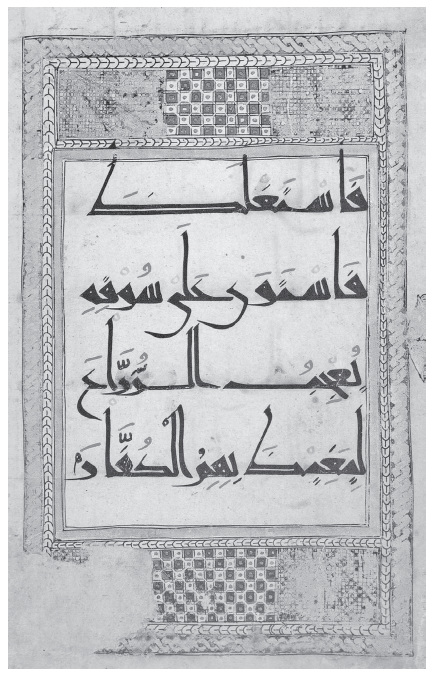 فَاسْتَغْلَظَ
فَاسْتَوَى عَلَى سُوقِهِ
يُعْجِبُ الزُّرَّاعَ
لِيَغِيظَ بِهِمُ الْكُفَّارَ